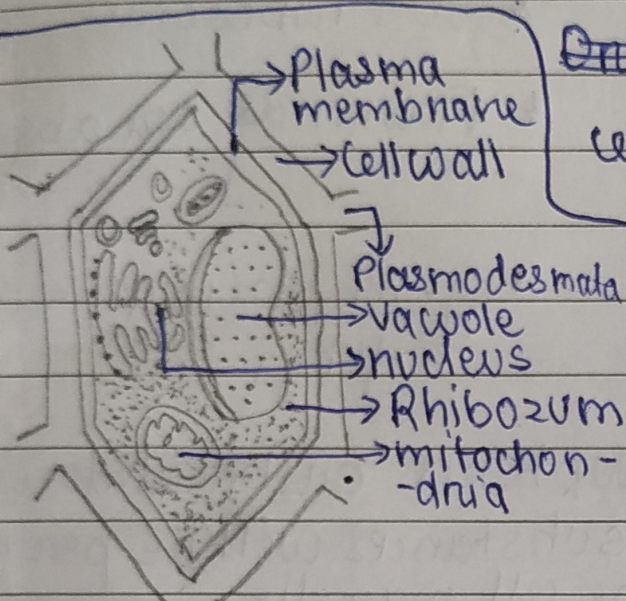 Plasma
membrane
Cell wall
Plasmodesmata
vacuole
nucleus
Rhibozum
mitochon-
-dria